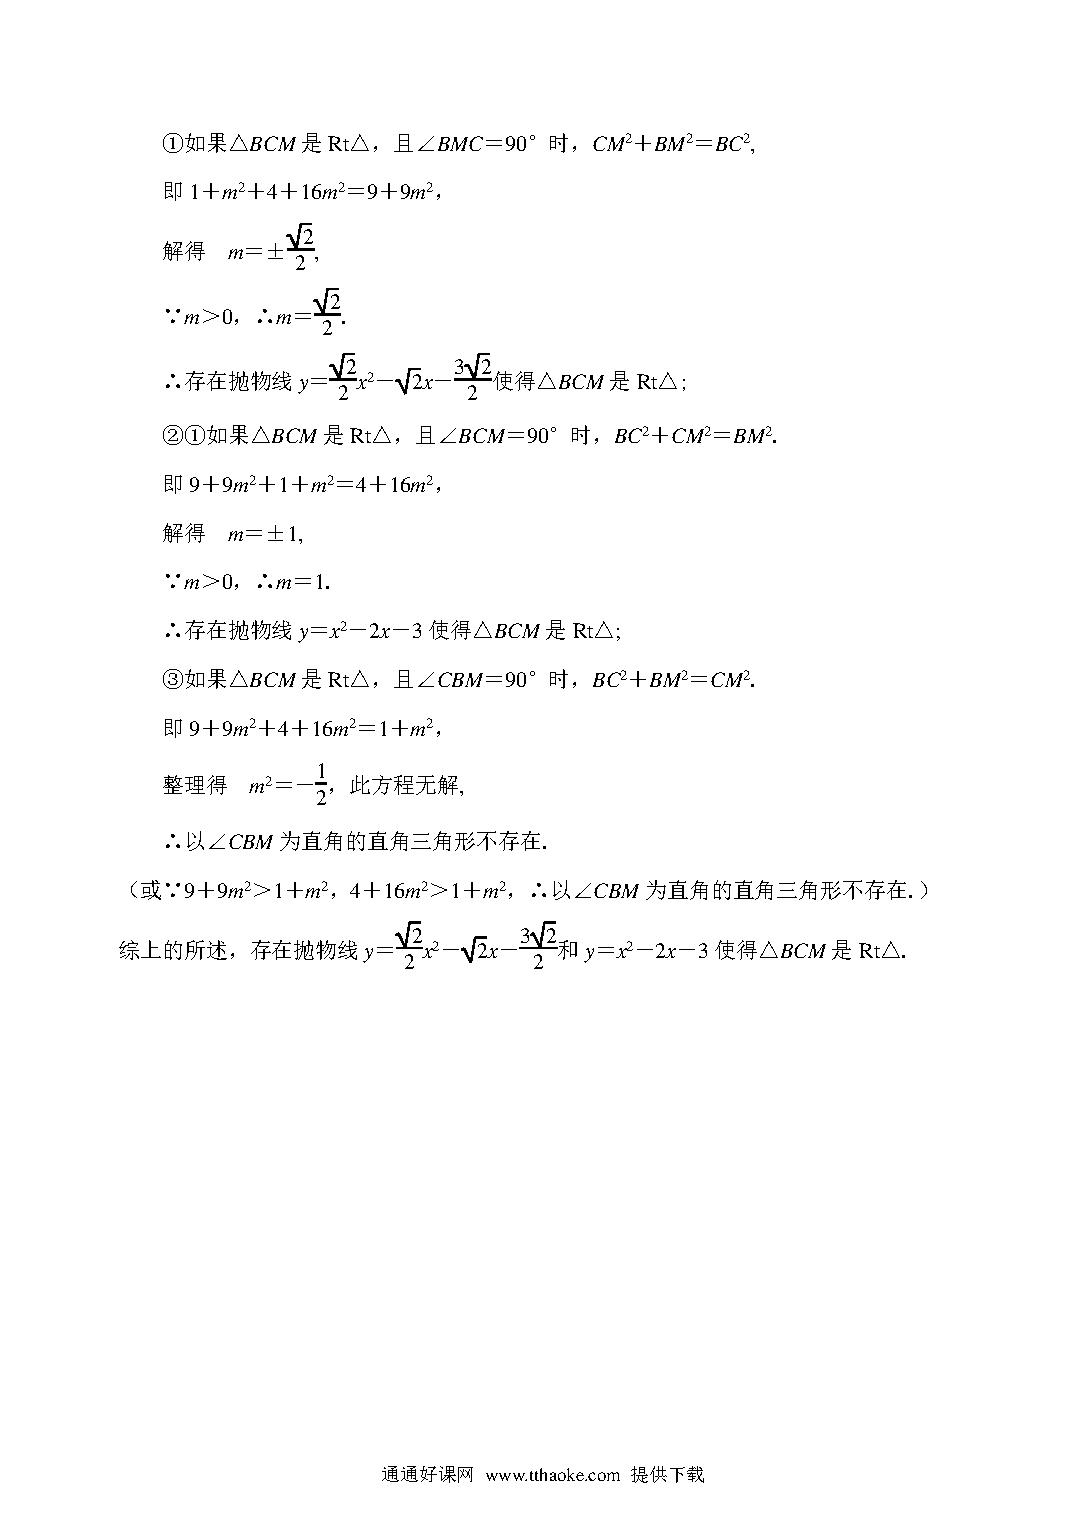 ①如果△BCM 是 Rt△，且∠BMC＝90°时，CM²＋BM²＝BC²,
即 1＋m²＋4＋16m²＝9＋9m²，
解得　m＝±√2/2,
∵m＞0，∴m＝√2/2.
∴存在抛物线 y＝√2/2x²－√2x－3√2/2使得△BCM 是 Rt△;
②①如果△BCM 是 Rt△，且∠BCM＝90°时，BC²＋CM²＝BM².
即 9＋9m²＋1＋m²＝4＋16m²，
解得　m＝±1,
∵m＞0，∴m＝1.
∴存在抛物线 y＝x²－2x－3 使得△BCM 是 Rt△;
③如果△BCM 是 Rt△，且∠CBM＝90°时，BC²＋BM²＝CM².
即 9＋9m²＋4＋16m²＝1＋m²，
整理得　m²＝－1/2，此方程无解,
∴以∠CBM 为直角的直角三角形不存在.
（或∵9＋9m²＞1＋m²，4＋16m²＞1＋m²，∴以∠CBM 为直角的直角三角形不存在.）
综上的所述，存在抛物线 y＝√2/2x²－√2x－3√2/2和 y＝x²－2x－3 使得△BCM 是 Rt△.
通通好课网 www.tthaoke.com 提供下载